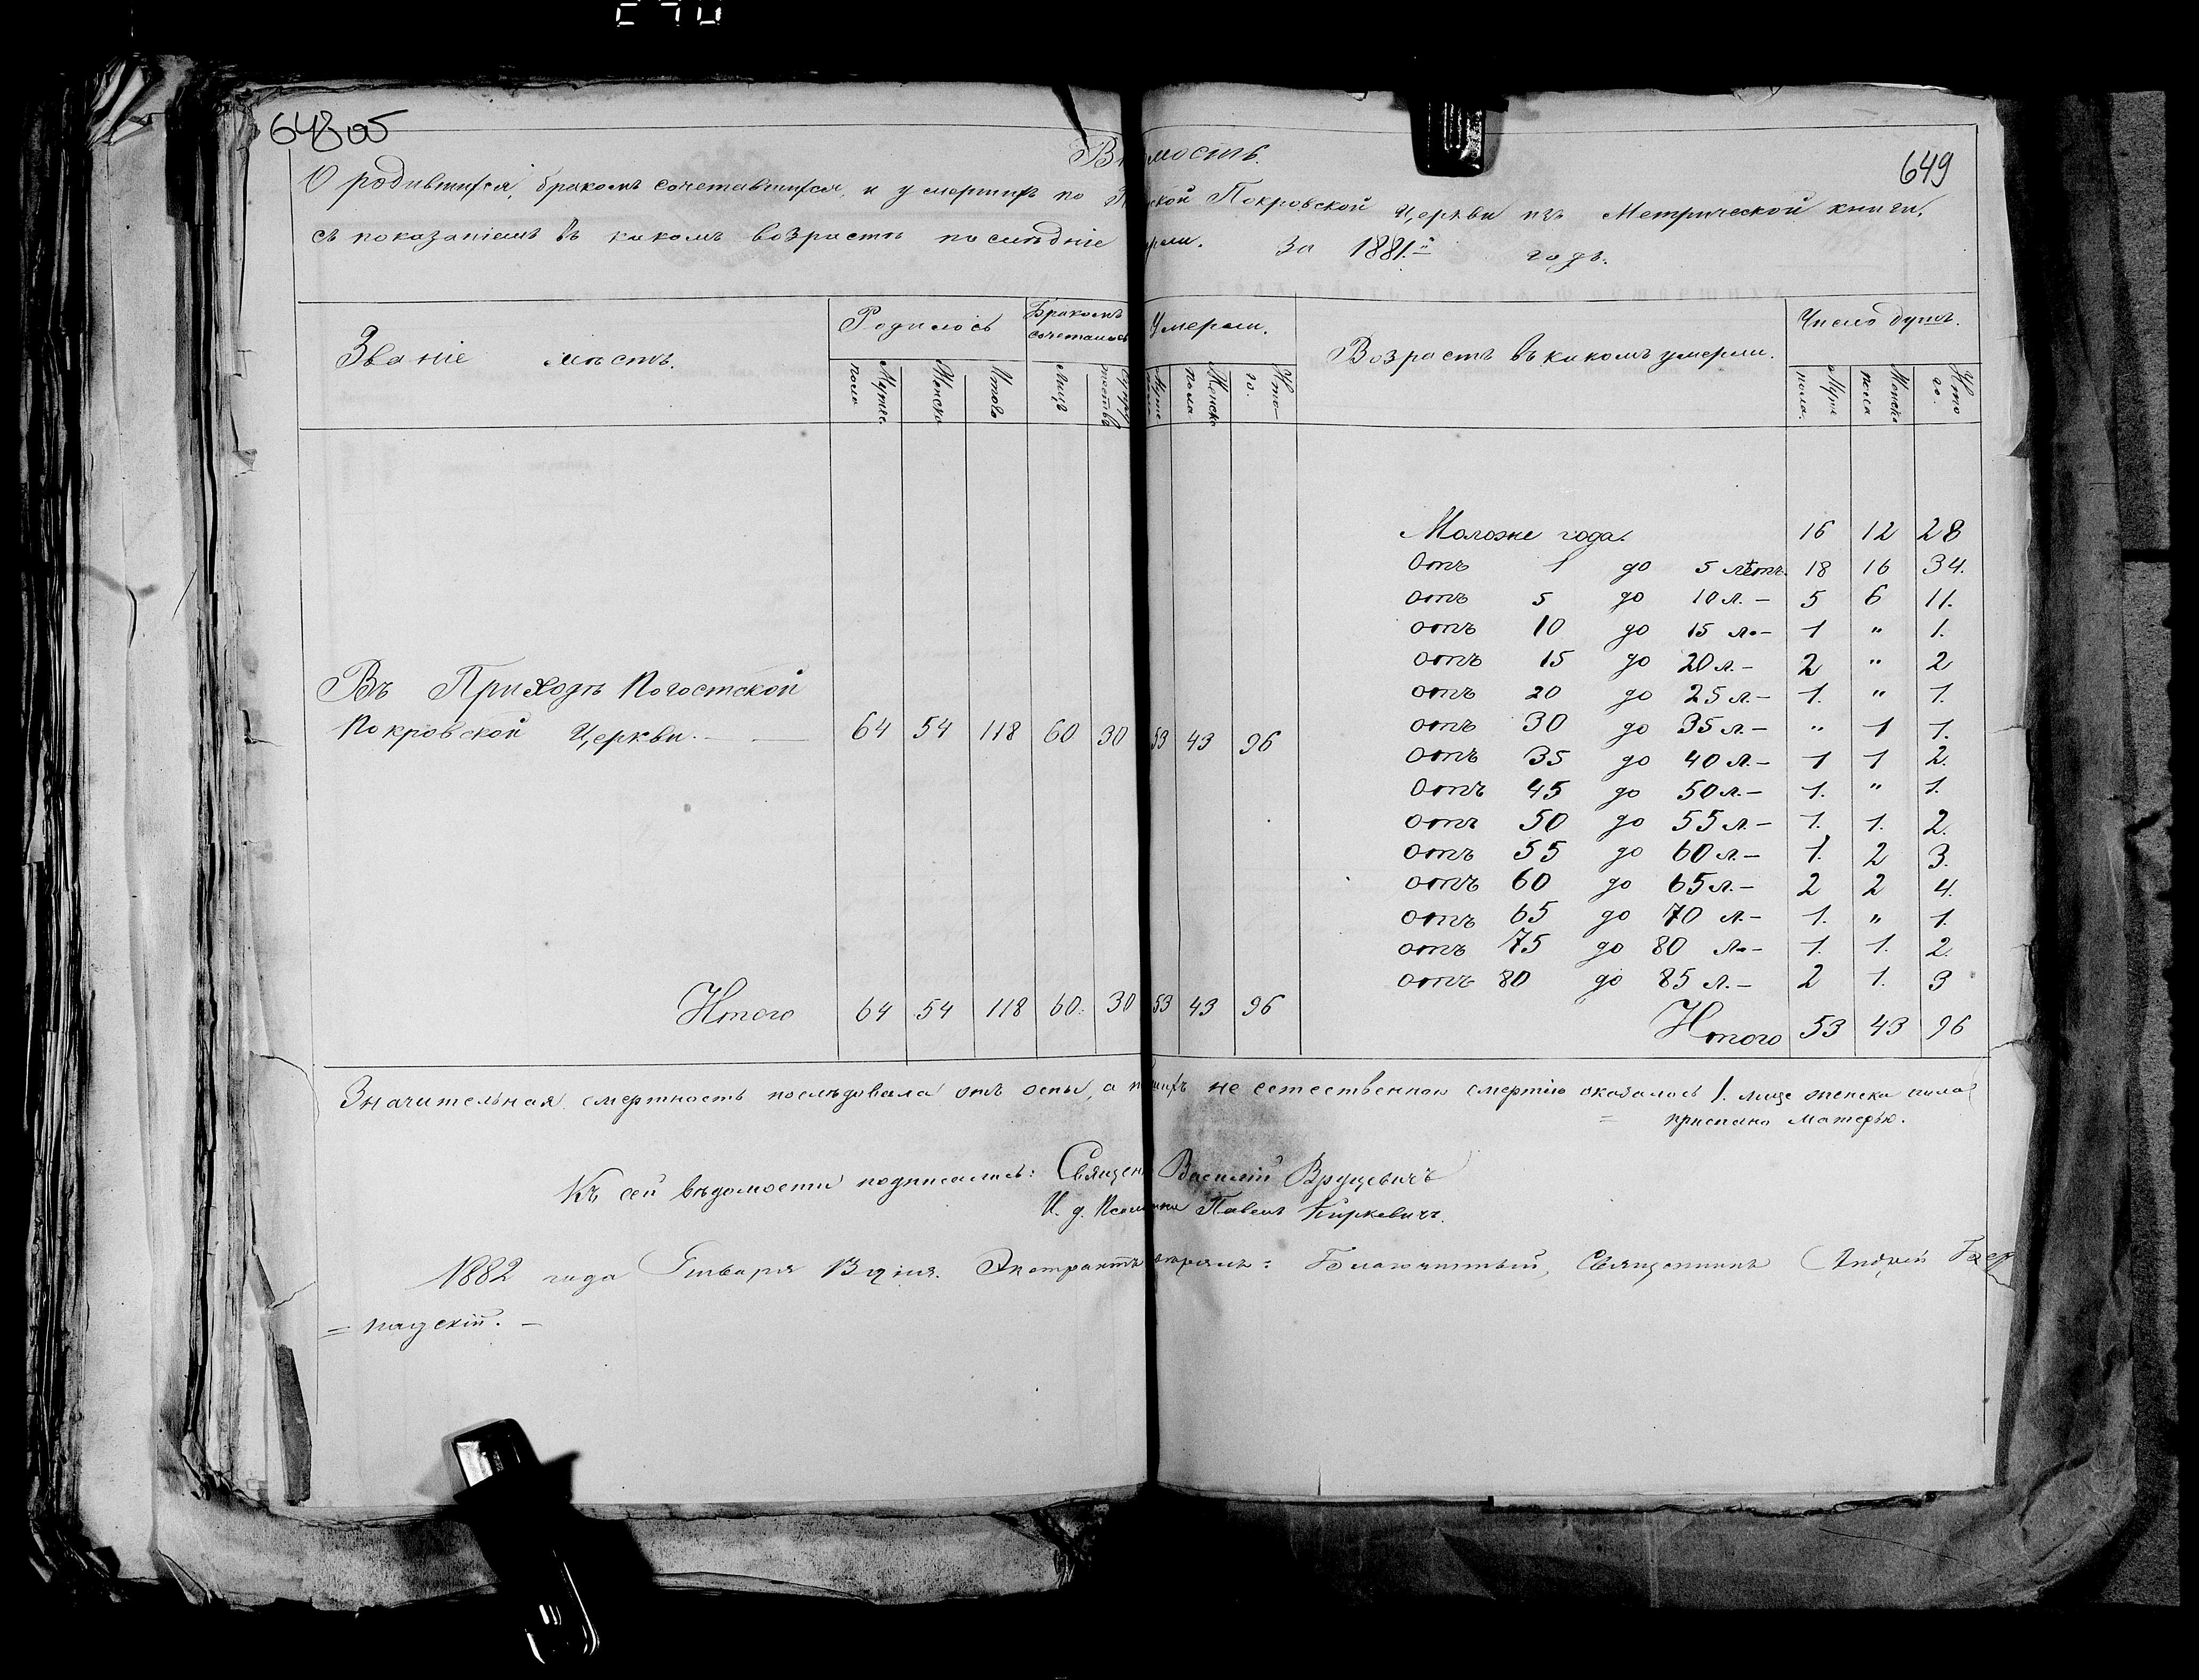 648 об
649
Вѣдомость.
О родившихся, бракомъ сочетавшихся, и умершихъ по ской Покровской Церкви изъ Метрической книги,
съ показаніемъ въ какомъ возрастѣ послѣдніе умерли. За 1881.й годъ.
Званіе мѣстъ.
Родилось
Бракомъ сочеталось
Умерли.
Возрастъ въ какомъ умерли.
Число душъ.
Мужес. пола
Женска
Итого
Лицъ
Супружествъ
Муж. пола
Женска пола
Ито-го.
Муж. пола.
Женска пола
Итого.
Моложе года. 16 12 28
Отъ 1 до 5 лѣтъ. 18 16 34.
отъ 5 до 10 л. – 5 6 11.
отъ 10 до 15 л. – 1 " 1.
отъ 15 до 20 л. – 2 " 2
отъ 20 до 25 л. – 1. " 1.
отъ 30 до 35 л. – " 1 1.
отъ 35 до 40 л. – 1 1 2.
Отъ 45 до 50 л. – 1. " 1.
отъ 50 до 55 л. – 1. 1. 2.
отъ 55 до 60 л. – 1. 2 3.
отъ 60 до 65 л. – 2 2 4.
отъ 65 до 70 л. – 1. " 1.
отъ 75 до 80 л. – 1. 1. 2.
отъ 80 до 85 л. – 2 1. 3
Итого 53 43 96
Въ Приходѣ Погостской
Покровской Церкви. — 64 54 118 60 30 53 43 96
Итого 64 54 118 60. 30 53 43 96
Значительная смертность послѣдовала отъ оспы, а не естественною смертію оказалось 1. лице женска пола
= приспано матерью.
Къ сей вѣдомости подписались: Священ Василій Вруцевичъ
И. д. Псаломщика Павелъ Киркевичъ.
1882 года Января дня. Экстрактъ : Благочинный, Священникъ Андрей
= пацскій. –